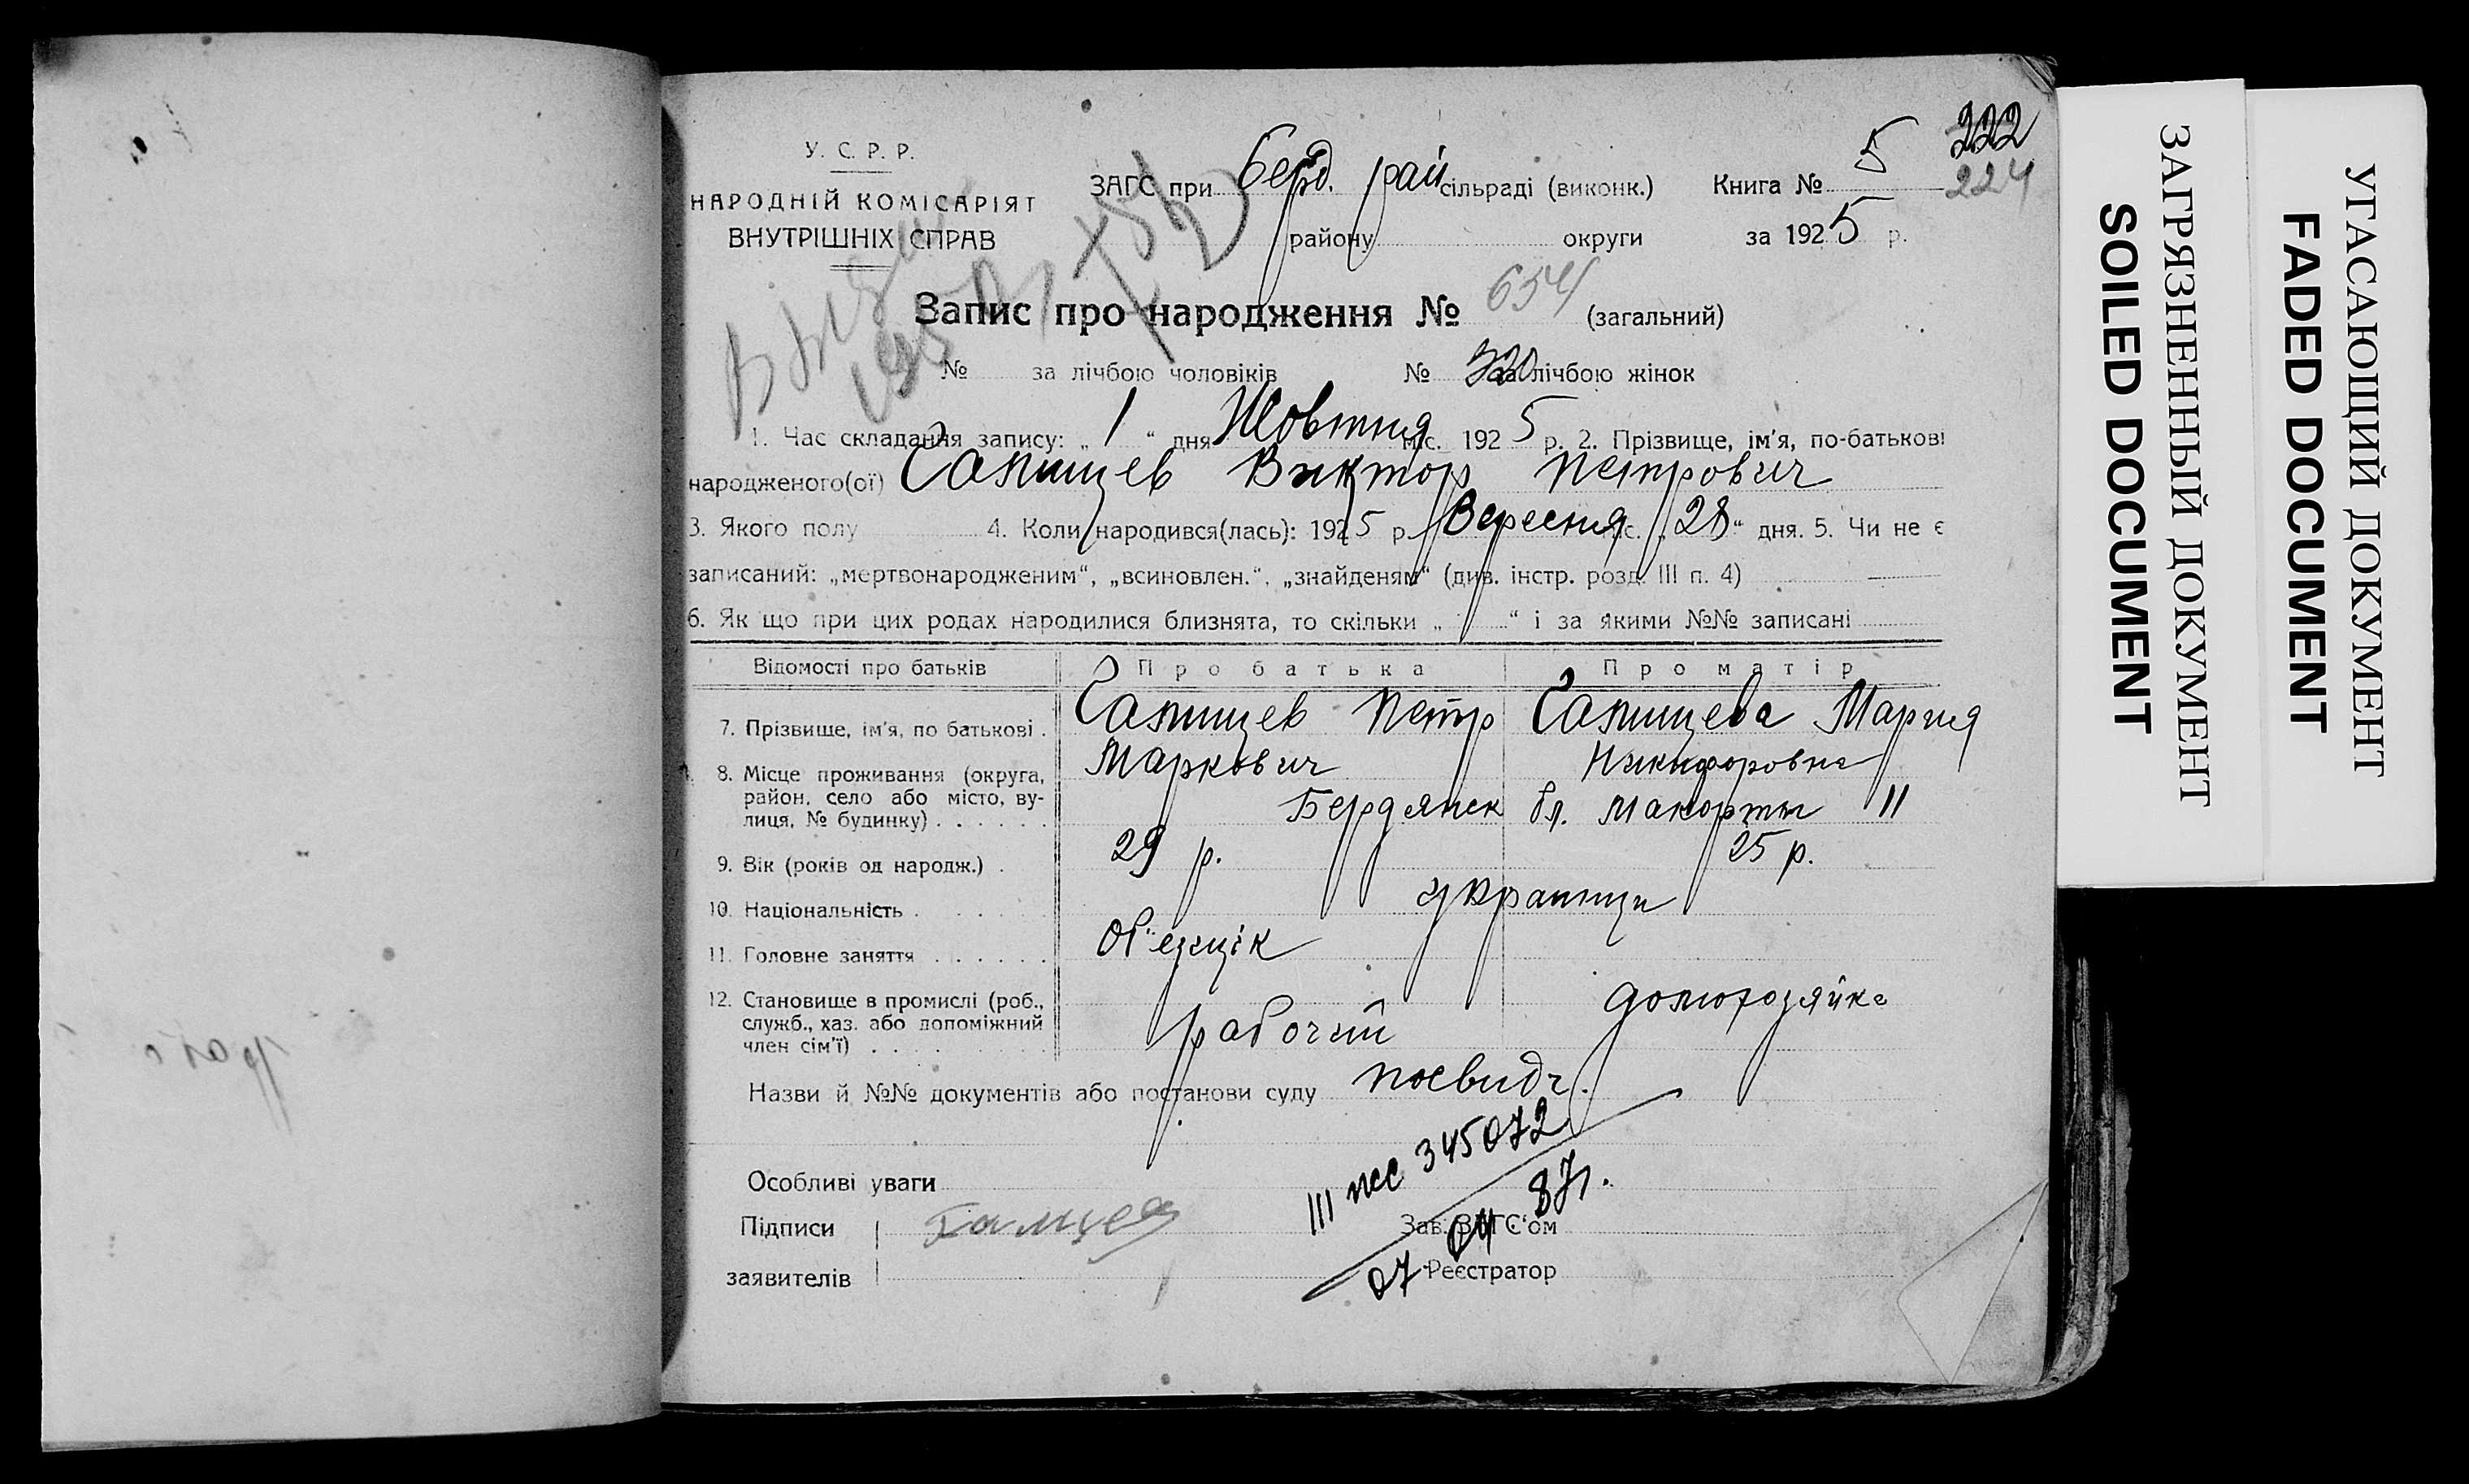 222
У. С. Р. Р.
ЗАГС при Берд. рай сільраді (виконк.) Книга № 5
224
НАРОДНІЙ КОМІСАРІЯТ
ВНУТРІШНІХ СПРАВ
району округи за 1925 р.
Запис про народження № 654 (загальний)
№ за лічбою чоловіків № 320 за лічбою жінок
1. Час складання запису: „1“ дня Жовтня міс. 1925 р. 2. Прізвище, ім'я, по-батькові
народженого(ої) Виктор Петрович
3. Якого полу 4. Коли народився(лась): 1925 р. Вересня міс. „28“ дня. 5. Чи не є
записаний: „мертвонародженим“, „всиновлен.“, „знайденям“ (див. інстр. розд. III п. 4)
6. Як що при цих родах народилися близнята, то скільки „ “ і за якими №№ записані
Відомості про батьків Про батька Про матір
7. Прізвище, ім'я, по батькові . Петр Мария
Маркович Никифоровна
8. Місце проживання (округа,
район, село або місто, ву-
лиця, № будинку) . . . . . . Бердянск Макорты 11
9. Вік (років од народж.) . 29 р. 25 р.
10. Національність . . . . . . украинци
11. Головне заняття . . . . . . Об'ездчік
12. Становище в промислі (роб.,
служб., хаз. або допоміжний
член сім'ї) . . . . рабочий домохозяйка
Назви й №№ документів або постанови суду посвидч.
III 345072
Особливі уваги
87г.
Підписи Зав. ЗАГС'ом
07 04
заявителів Реєстратор
ЗАГРЯЗНЕННЫЙ ДОКУМЕНТ
SOILED DOCUMENT
УГАСАЮЩИЙ ДОКУМЕНТ
FADED DOCUMENT